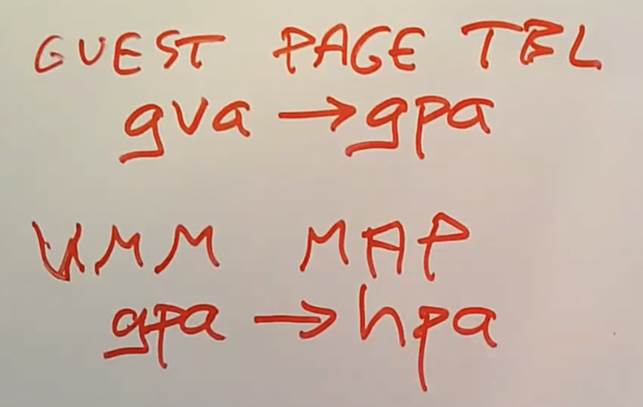 GUEST PAGE TBL
gva → gpa
VMM MAP
gpa → hpa